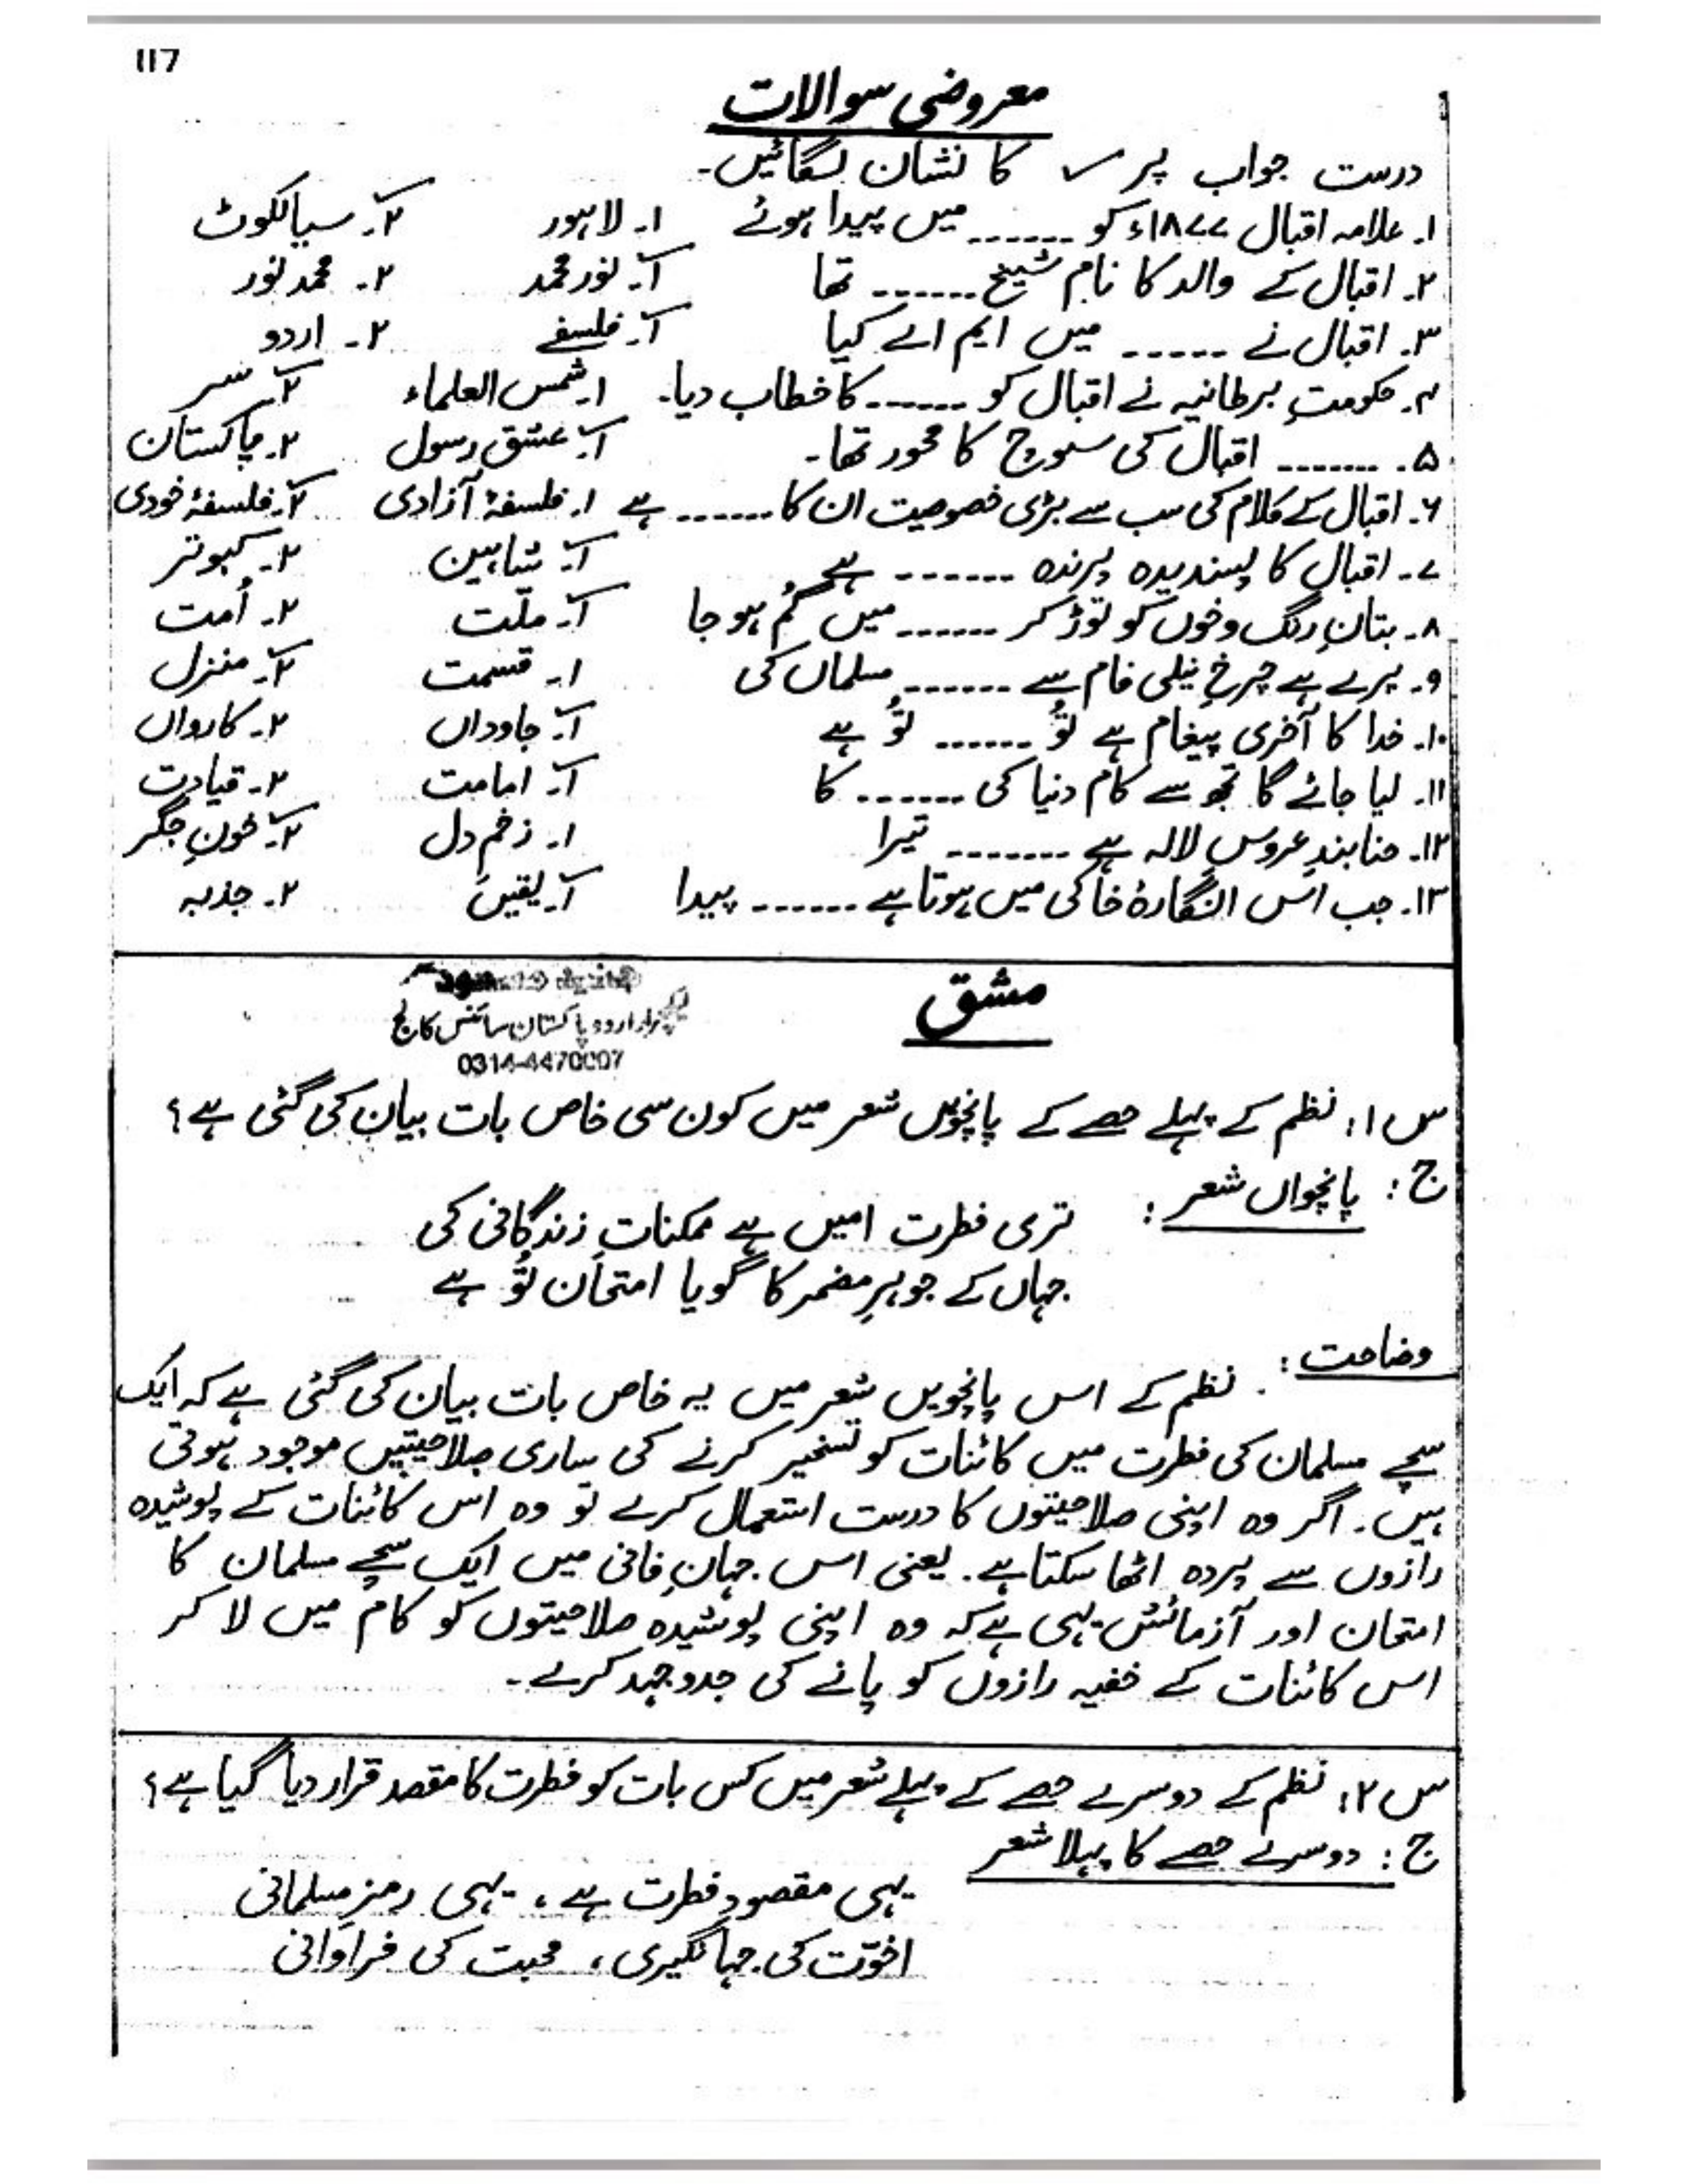 117
معروضی سوالات
درست جواب پر ✓ کا نشان لگائیں۔
۱۔ علامہ اقبال ۱۸۷۷ء کو ۔۔۔۔۔۔ میں پیدا ہوئے ۱۔ لاہور ۲۔ سیالکوٹ
۲۔ اقبال کے والد کا نام شیخ ۔۔۔۔۔۔ تھا ۱۔ نور محمد ۲۔ محمد نور
۳۔ اقبال نے ۔۔۔۔۔۔ میں ایم اے کیا ۱۔ فلسفے ۲۔ اردو
۴۔ حکومتِ برطانیہ نے اقبال کو ۔۔۔۔۔۔ کا خطاب دیا۔ ۱۔ شمس العلماء ۲۔ سر
۵۔ ۔۔۔۔۔۔۔ اقبال کی سوچ کا محور تھا۔ ۱۔ عشقِ رسول ۲۔ پاکستان
۶۔ اقبال کے کلام کی سب سے بڑی خصوصیت ان کا ۔۔۔۔۔۔ ہے ۱۔ فلسفۂ آزادی ۲۔ فلسفۂ خودی
۷۔ اقبال کا پسندیدہ پرندہ ۔۔۔۔۔۔ ہے ۱۔ شاہین ۲۔ کبوتر
۸۔ بتانِ رنگ و خوں کو توڑ کر ۔۔۔۔۔۔ میں گُم ہو جا ۱۔ ملّت ۲۔ اُمت
۹۔ پرے ہے چرخِ نیلی فام سے ۔۔۔۔۔۔ مسلماں کی ۱۔ قسمت ۲۔ منزل
۱۰۔ خدا کا آخری پیغام ہے تُو ۔۔۔۔۔۔ تُو ہے ۱۔ جاوداں ۲۔ کارواں
۱۱۔ لیا جائے گا تجھ سے کام دنیا کی ۔۔۔۔۔۔ کا ۱۔ امامت ۲۔ قیادت
۱۲۔ حنا بندِ عروسِ لالہ ہے ۔۔۔۔۔۔۔ تیرا ۱۔ زخمِ دل ۲۔ خونِ جگر
۱۳۔ جب اس انگارۂ خاکی میں ہوتا ہے ۔۔۔۔۔۔ پیدا ۱۔ یقیں ۲۔ جذبہ
مشق
لیکچرار اردو پاکستان سائنس کالج
0314-4470007
س ۱: نظم کے پہلے حصے کے پانچویں شعر میں کون سی خاص بات بیان کی گئی ہے؟
ج: پانچواں شعر:
تری فطرت امیں ہے ممکناتِ زندگانی کی
جہاں کے جوہرِ مضمر کا گویا امتحاں تُو ہے
وضاحت:
نظم کے اس پانچویں شعر میں یہ خاص بات بیان کی گئی ہے کہ ایک
سچے مسلمان کی فطرت میں کائنات کو تسخیر کرنے کی ساری صلاحیتیں موجود ہوتی
ہیں۔ اگر وہ اپنی صلاحیتوں کا درست استعمال کرے تو وہ اس کائنات کے پوشیدہ
رازوں سے پردہ اٹھا سکتا ہے۔ یعنی اس جہانِ فانی میں ایک سچے مسلمان کا
امتحان اور آزمائش یہی ہے کہ وہ اپنی پوشیدہ صلاحیتوں کو کام میں لا کر
اس کائنات کے خفیہ رازوں کو پانے کی جدوجہد کرے۔
س ۲: نظم کے دوسرے حصے کے پہلے شعر میں کس بات کو فطرت کا مقصد قرار دیا گیا ہے؟
ج: دوسرے حصے کا پہلا شعر
یہی مقصودِ فطرت ہے، یہی رمزِ مسلمانی
اخوّت کی جہانگیری، محبت کی فراوانی